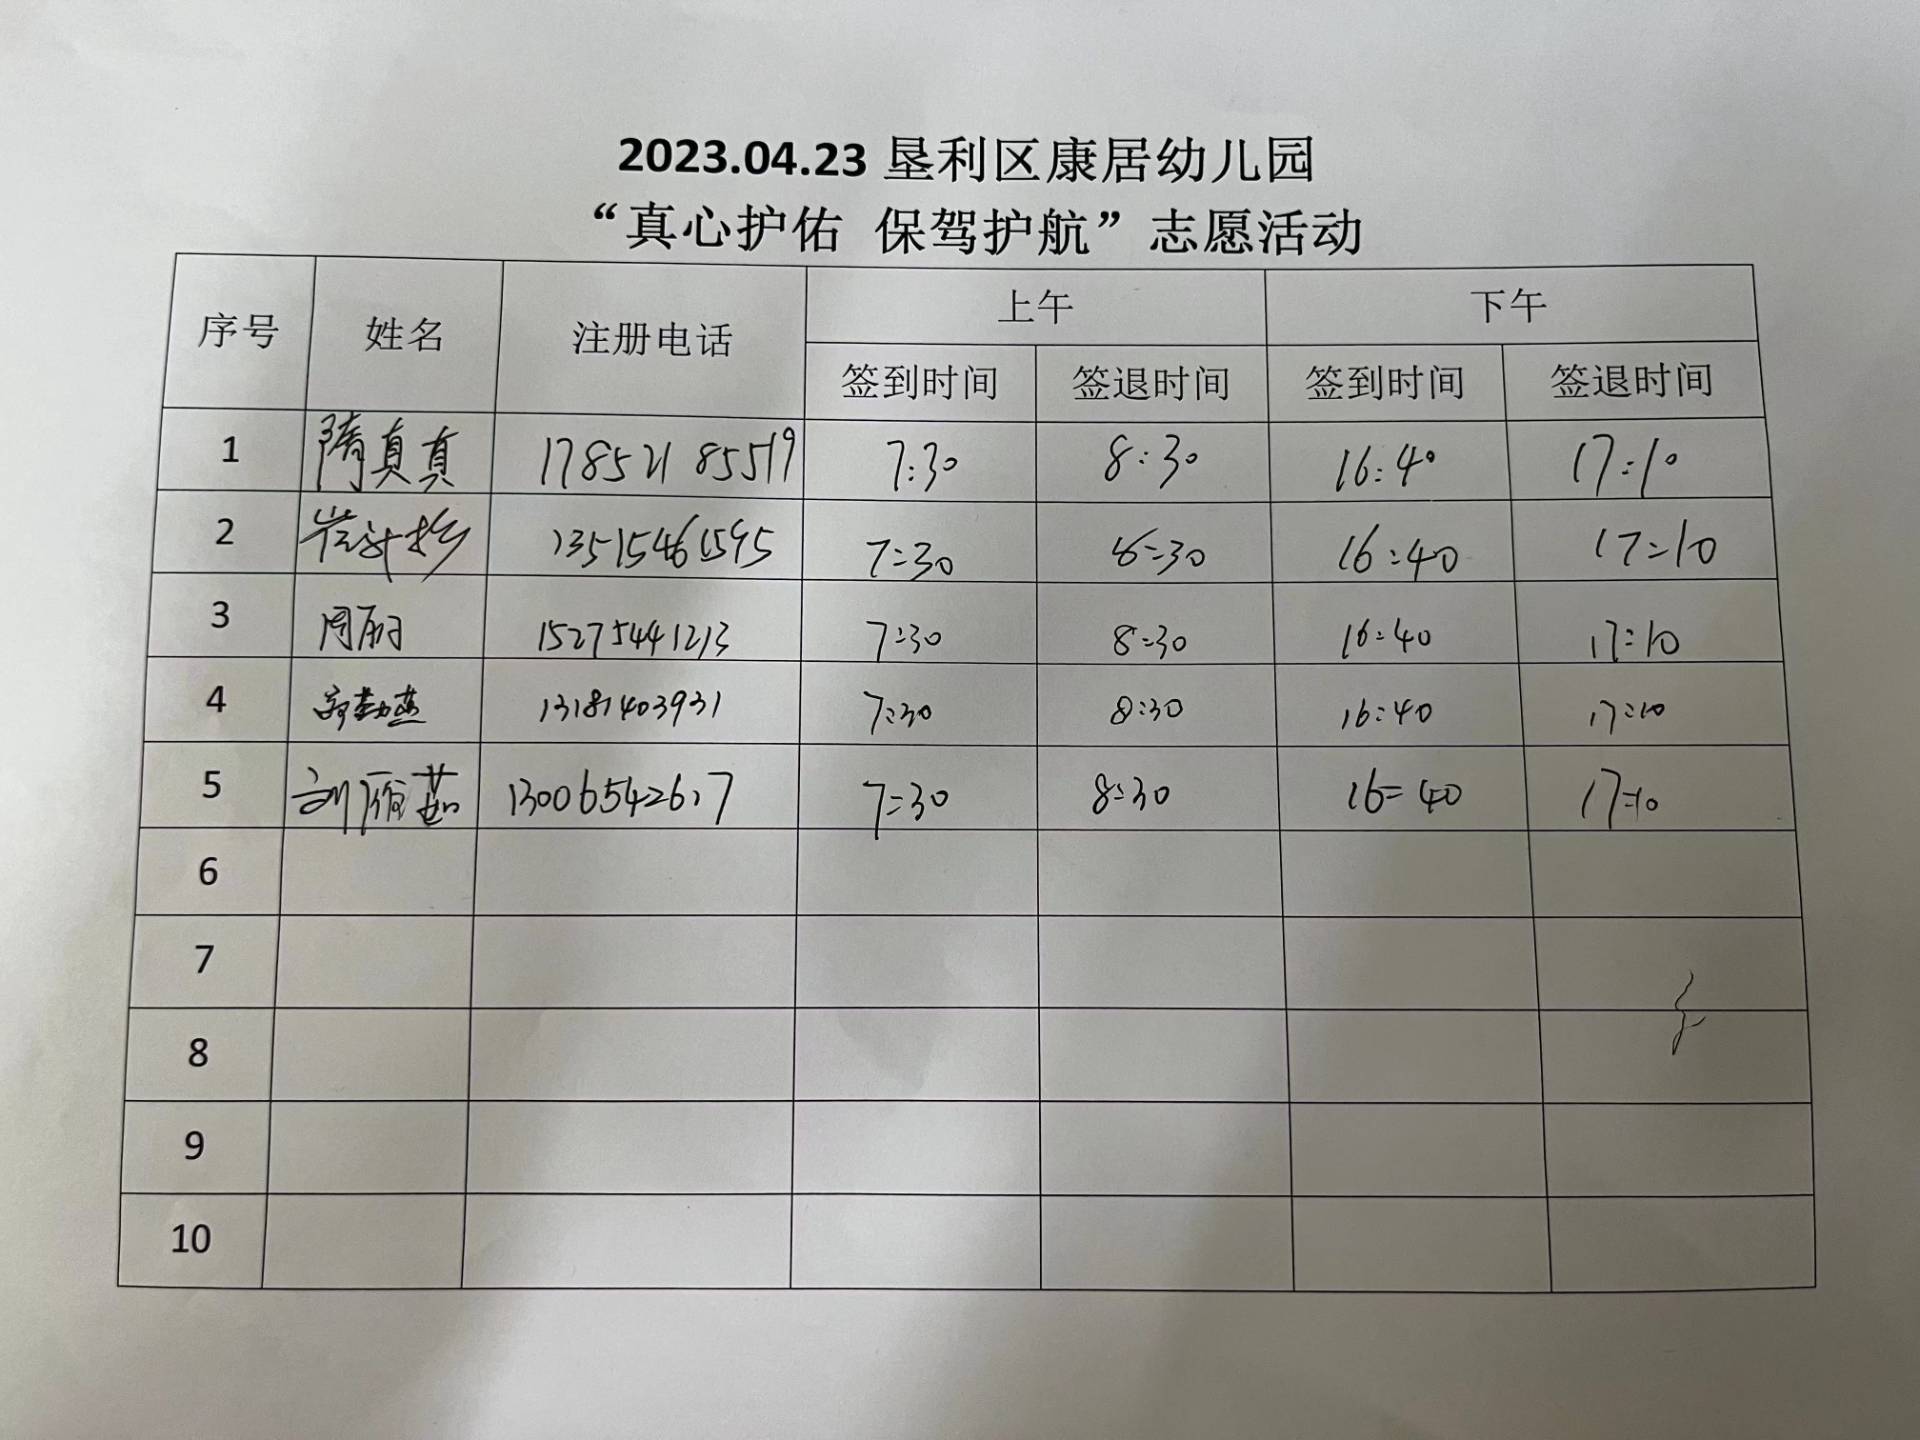 2023.04.23 垦利区康居幼儿园
“真心护佑 保驾护航”志愿活动
序号 姓名 注册电话 上午 下午
签到时间 签退时间 签到时间 签退时间
1 隋真真 17852185519 7:30 8:30 16:40 17:10
2 13515461595 7:30 8:30 16:40 17:10
3 周丽 15275441213 7:30 8:30 16:40 17:10
4 13181403931 7:30 8:30 16:40 17:10
5 刘雁茹 13006542617 7:30 8:30 16:40 17:10
6
7
8
9
10